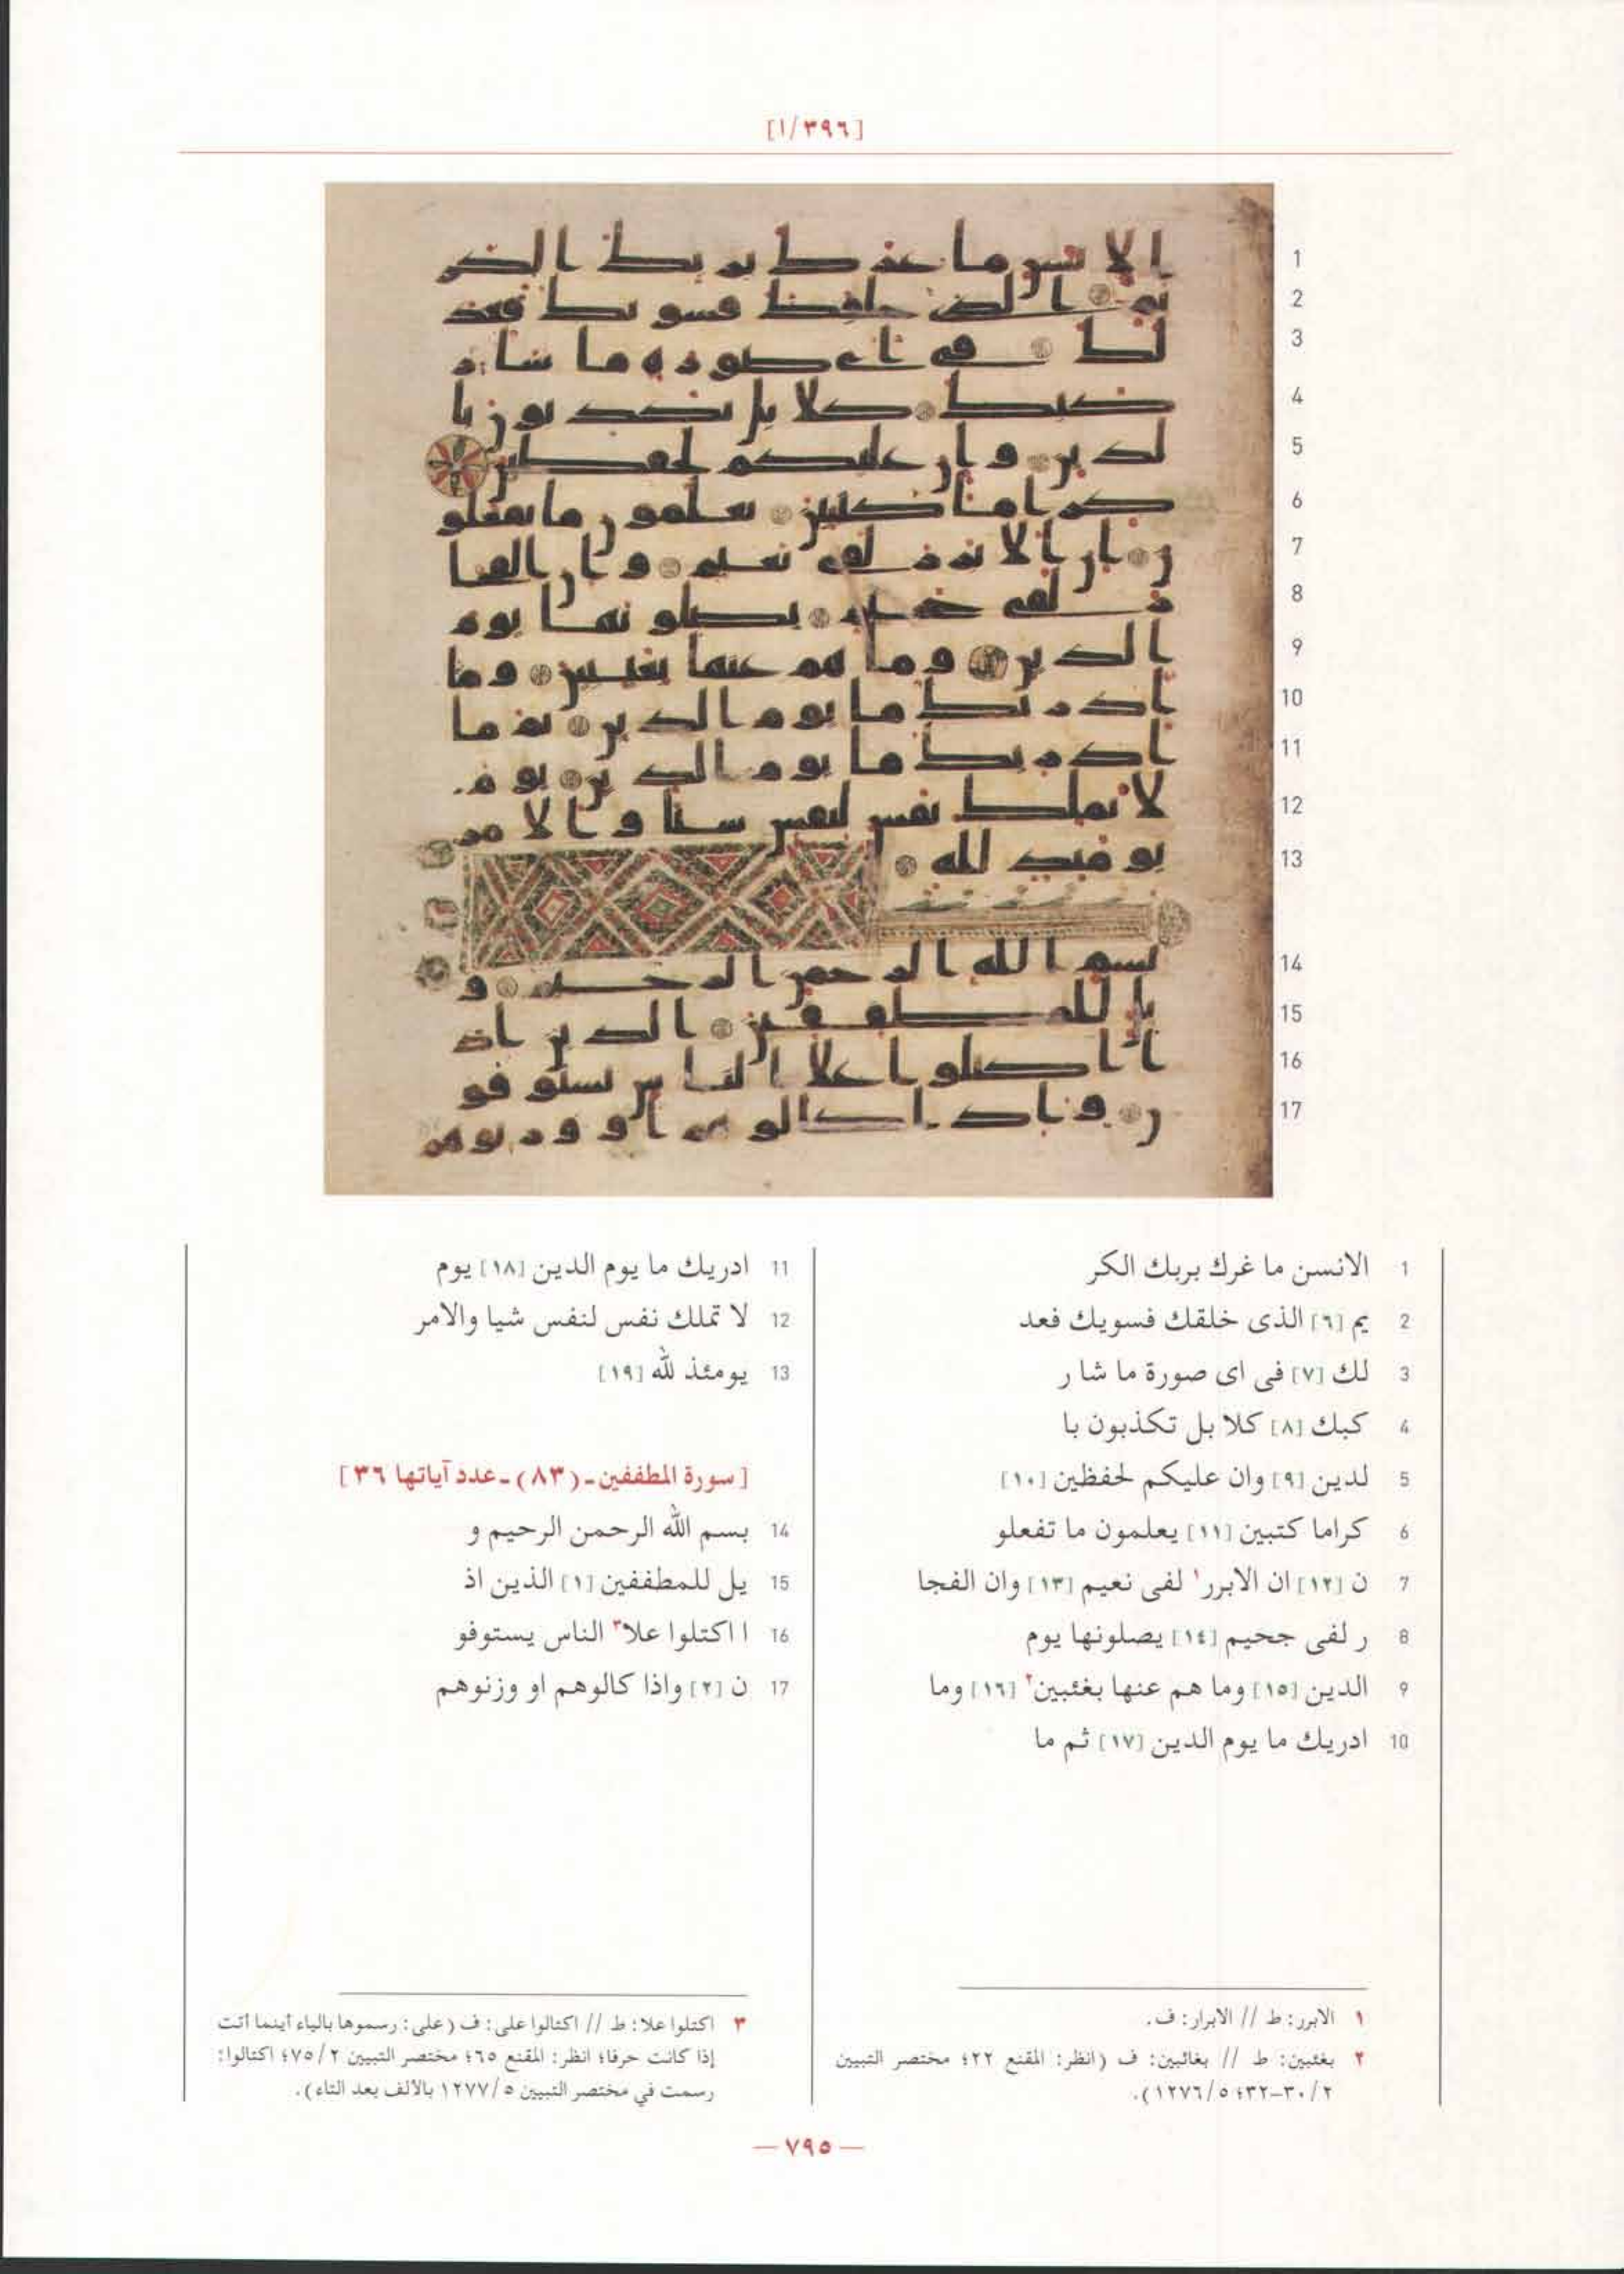 [٣٩٦/١]
1 الانسن ما غرك بربك الكر
2 يم [٦] الذى خلقك فسويك فعد
3 لك [٧] فى اى صورة ما شا ر
4 كبك [٨] كلا بل تكذبون با
5 لدين [٩] وان عليكم لحفظين [١٠]
6 كراما كتبين [١١] يعلمون ما تفعلو
7 ن [١٢] ان الابرر١ لفى نعيم [١٣] وان الفجا
8 ر لفى جحيم [١٤] يصلونها يوم
9 الدين [١٥] وما هم عنها بغئبين٢ [١٦] وما
10 ادريك ما يوم الدين [١٧] ثم ما
11 ادريك ما يوم الدين [١٨] يوم
12 لا تملك نفس لنفس شيا والامر
13 يومئذ لله [١٩]
[سورة المطففين ـ (٨٣) ـ عدد آياتها ٣٦]
14 بسم الله الرحمن الرحيم و
15 يل للمطففين [١] الذين اذ
16 ا اكتلوا علا٣ الناس يستوفو
17 ن [٢] واذا كالوهم او وزنوهم
١ الابرر: ط // الابرار: ف.
٢ بغئبين: ط // بغائبين: ف (انظر: المقنع ٢٢؛ مختصر التبيين
٢/ ٣٠-٣٢؛ ٥/ ١٢٧٦).
٣ اكتلوا علا: ط // اكتالوا على: ف (على: رسموها بالياء أينما أتت
إذا كانت حرفا؛ انظر: المقنع ٦٥؛ مختصر التبيين ٢/ ٧٥؛ اكتالوا:
رسمت في مختصر التبيين ٥/ ١٢٧٧ بالألف بعد التاء).
— ٧٩٥ —